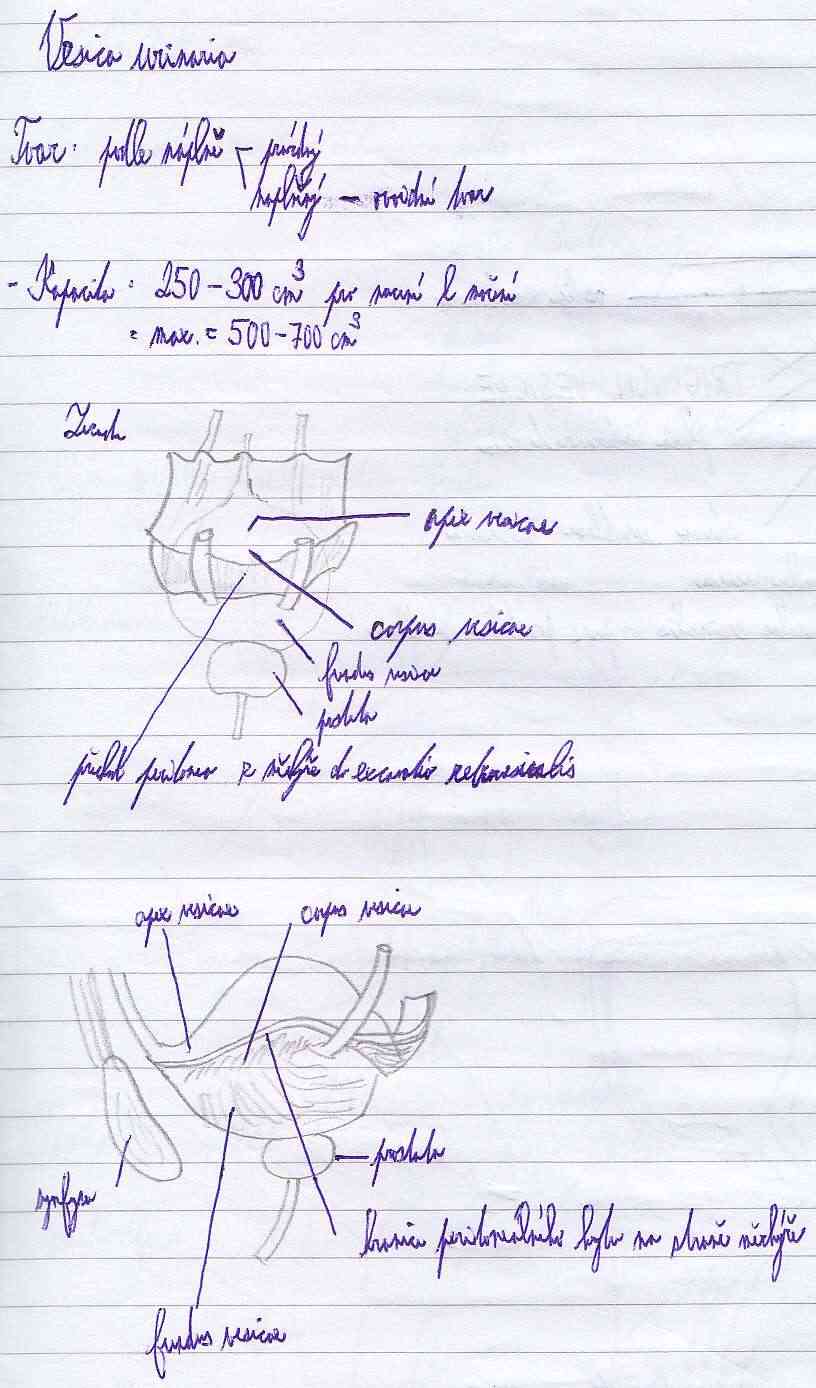 Vesica urinaria
Tvar: podle náplně – prázdný
naplněný – ovoidní tvar
- Kapacita = 250 – 300 cm³ pro nucení k močení
= max. = 500 – 700 cm³
Zezadu
apex vesicae
corpus vesicae
fundus vesicae
prostata
přechod peritonea z měchýře do excavatio retrovesicalis
apex vesicae corpus vesicae
prostata
symfysa
hranice peritoneálního krytu na straně měchýře
fundus vesicae